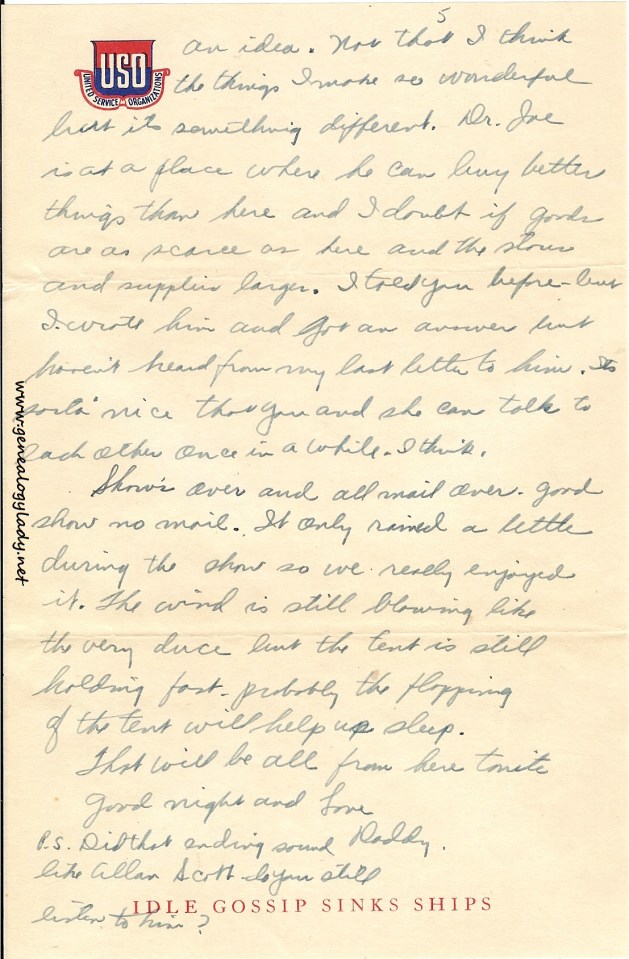 5
USO
UNITED SERVICE ORGANIZATIONS
an idea. Not that I think
the things I make so wonderful
but its something different. Dr. Joe
is at a place where he can buy better
things than here and I doubt if goods
are as scarce as here and the stores
and supplies larger. I told you before - but
I wrote him and got an answer but
haven't heard from my last letter to him. Its
sorta nice that you and she can talk to
each other once in a while. I think.
Show's over and all mail over. Good
show no mail. It only rained a little
during the show so we really enjoyed
it. The wind is still blowing like
the very duce but the tent is still
holding fast - probably the flopping
of the tent will help us sleep.
That will be all from here tonite
Good night and Love
Daddy.
P.S. Did that ending sound
like Allan Scott - do you still
listen to him?
IDLE GOSSIP SINKS SHIPS
www.genealogylady.net